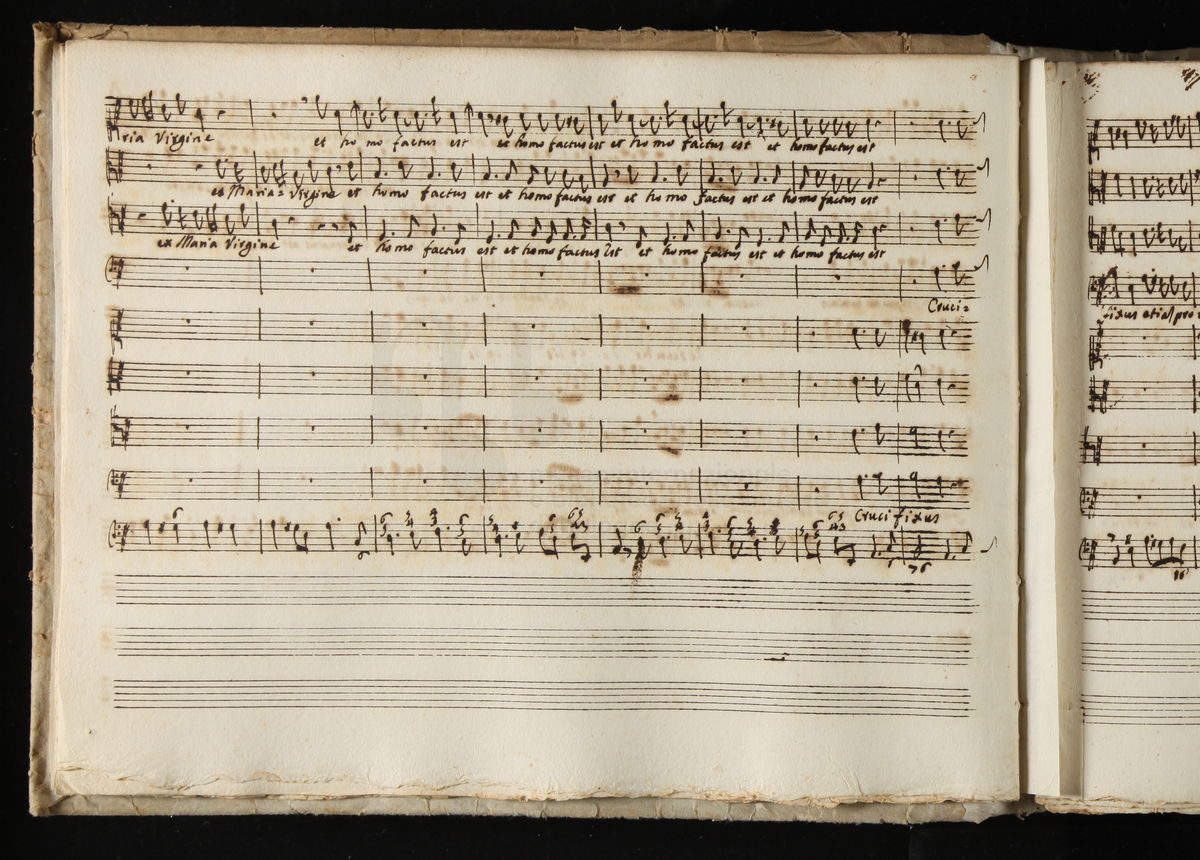 ria Virgine et homo factus est et homo factus est et homo factus est et homo factus est
ex Maria Virgine et homo factus est et homo factus est et homo factus est et homo factus est
ex Maria Virgine et homo factus est et homo factus est et homo factus est et homo factus est
Cruci=
Crucifixus
fixus etiam pro